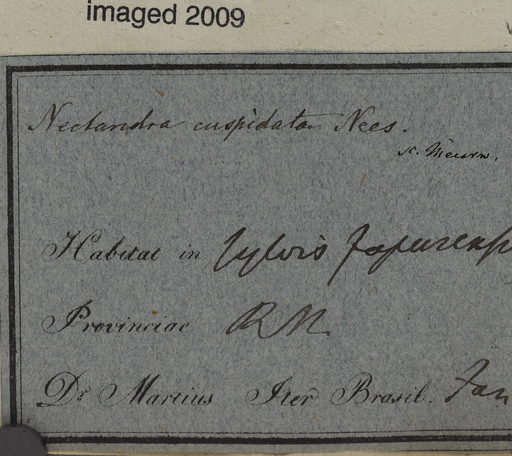 imaged 2009
Nectandra cuspidata Nees.
Habitat in Sylvis Japurensi
Provinciae R N.
Dr Martius Iter Brasil. Jan